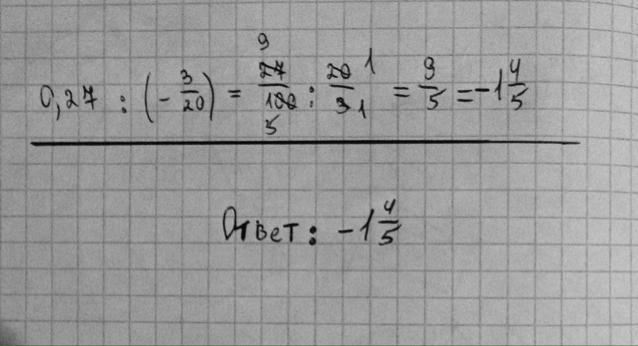 0,27 : (-3/20) = 27/100 : 20/3 = 9/5 = -1 4/5
Ответ: -1 4/5